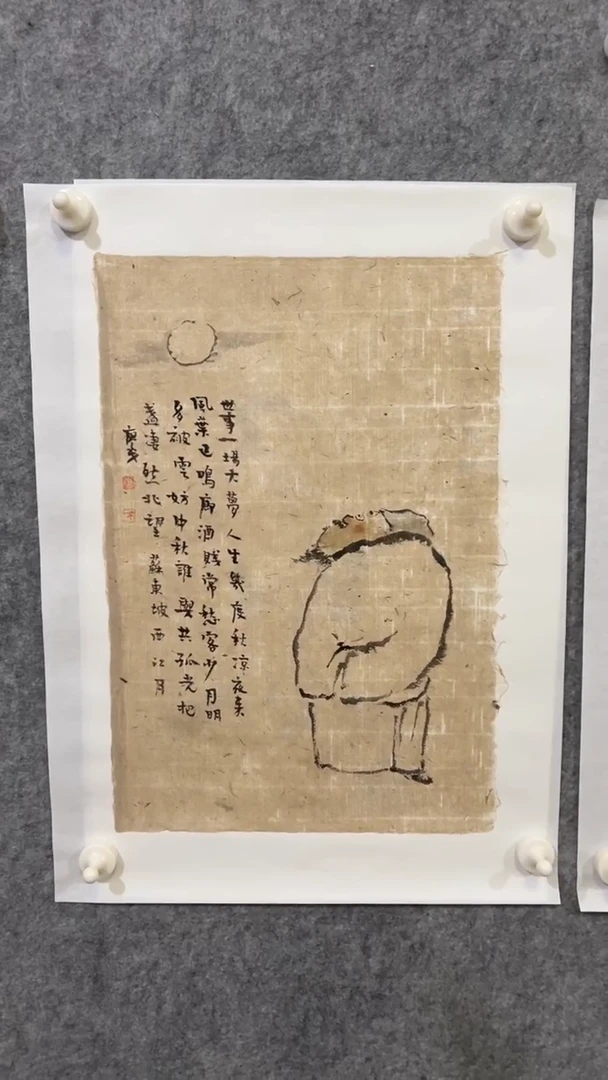 世事一場大夢人生幾度秋凉夜来
風葉已鳴廊酒賤常愁客少月明
多被雲妨中秋誰與共孤光把
盞凄然北望 蘇東坡西江月
庚